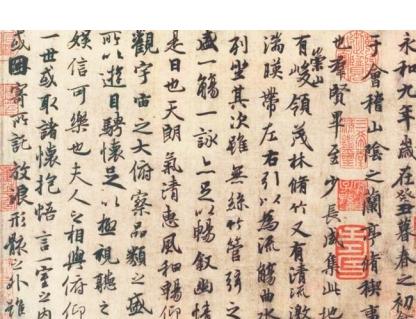 永和九年歲在癸丑暮春之初
于會稽山陰之蘭亭脩稧事
也羣賢畢至少長咸集此地
有崇山峻領茂林脩竹又有清流激
湍暎帶左右引以為流觴曲水
列坐其次雖無絲竹管弦之
盛一觴一詠亦足以暢敘幽情
是日也天朗氣清惠風和暢仰
觀宇宙之大俯察品類之盛
所以遊目騁懷足以極視聽之
娛信可樂也夫人之相與俯仰
一世或取諸懷抱悟言一室之內
或因寄所託放浪形骸之外雖